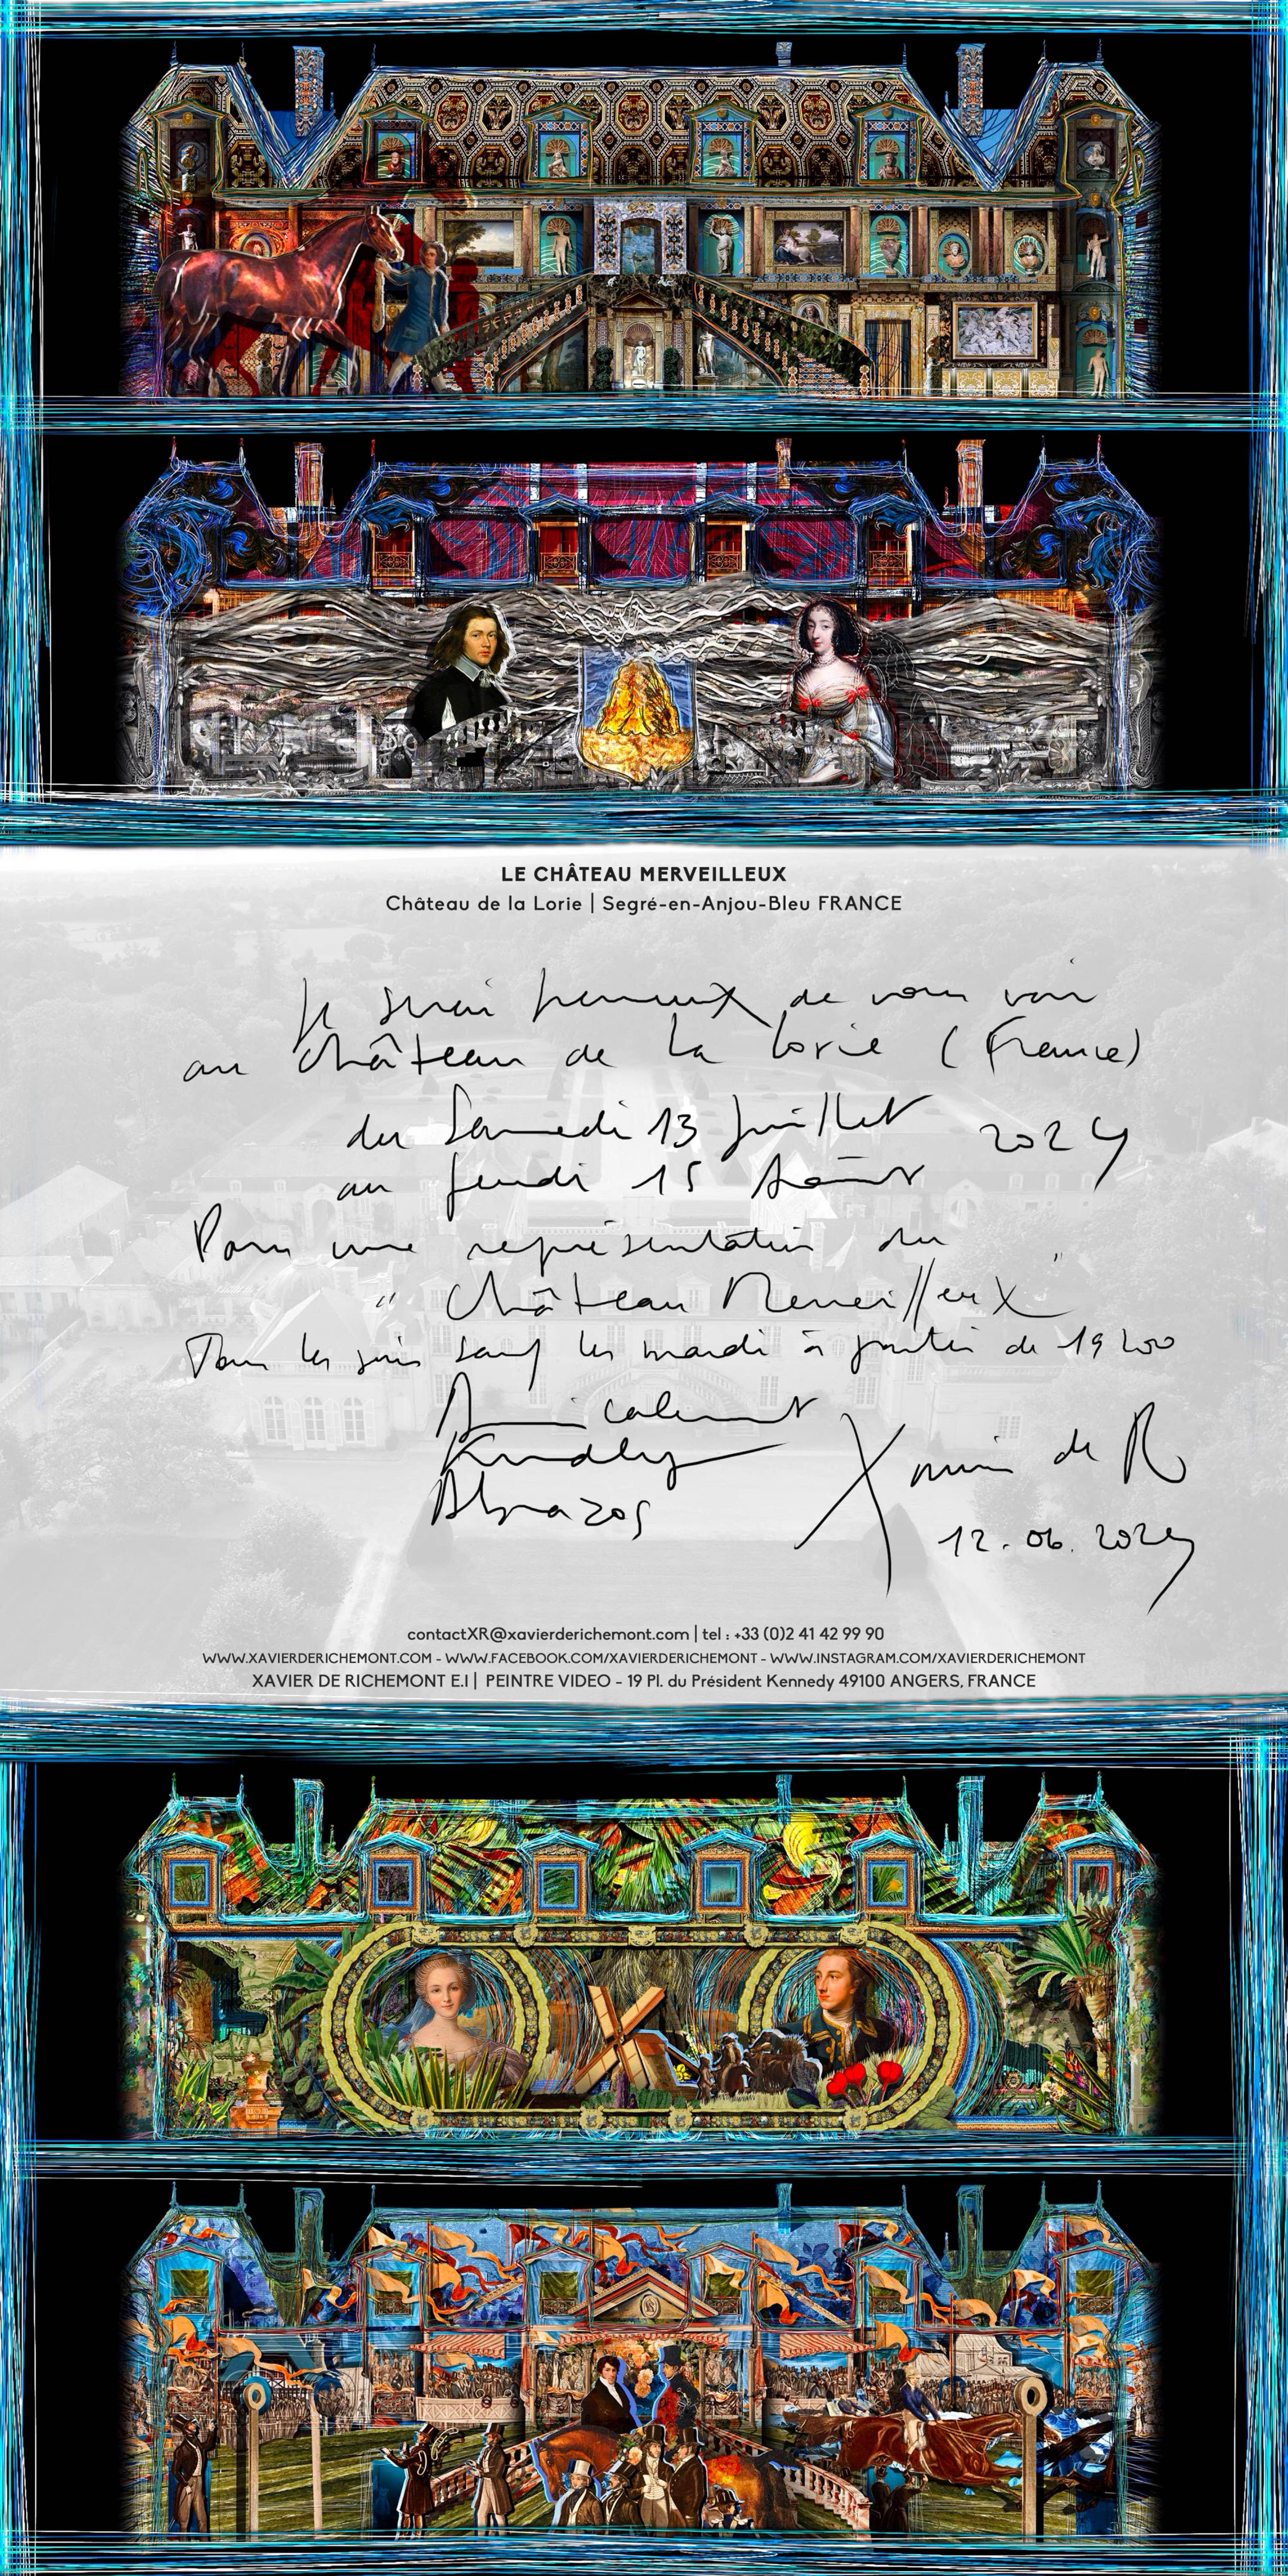 LE CHÂTEAU MERVEILLEUX
Château de la Lorie | Segré-en-Anjou-Bleu FRANCE
Je serai heureux de vous voir
au Château de La Lorie (France)
du Samedi 13 Juillet 2024
au Jeudi 15 Août
Pour une représentation du
"Château Merveilleux"
Tous les soirs sauf les mardi à partir de 19h00
Amicalement
Kindly
Abrazos
Xavier de R
12.06.2024
contactXR@xavierderichemont.com | tel : +33 (0)2 41 42 99 90
WWW.XAVIERDERICHEMONT.COM - WWW.FACEBOOK.COM/XAVIERDERICHEMONT - WWW.INSTAGRAM.COM/XAVIERDERICHEMONT
XAVIER DE RICHEMONT E.I | PEINTRE VIDEO - 19 Pl. du Président Kennedy 49100 ANGERS, FRANCE